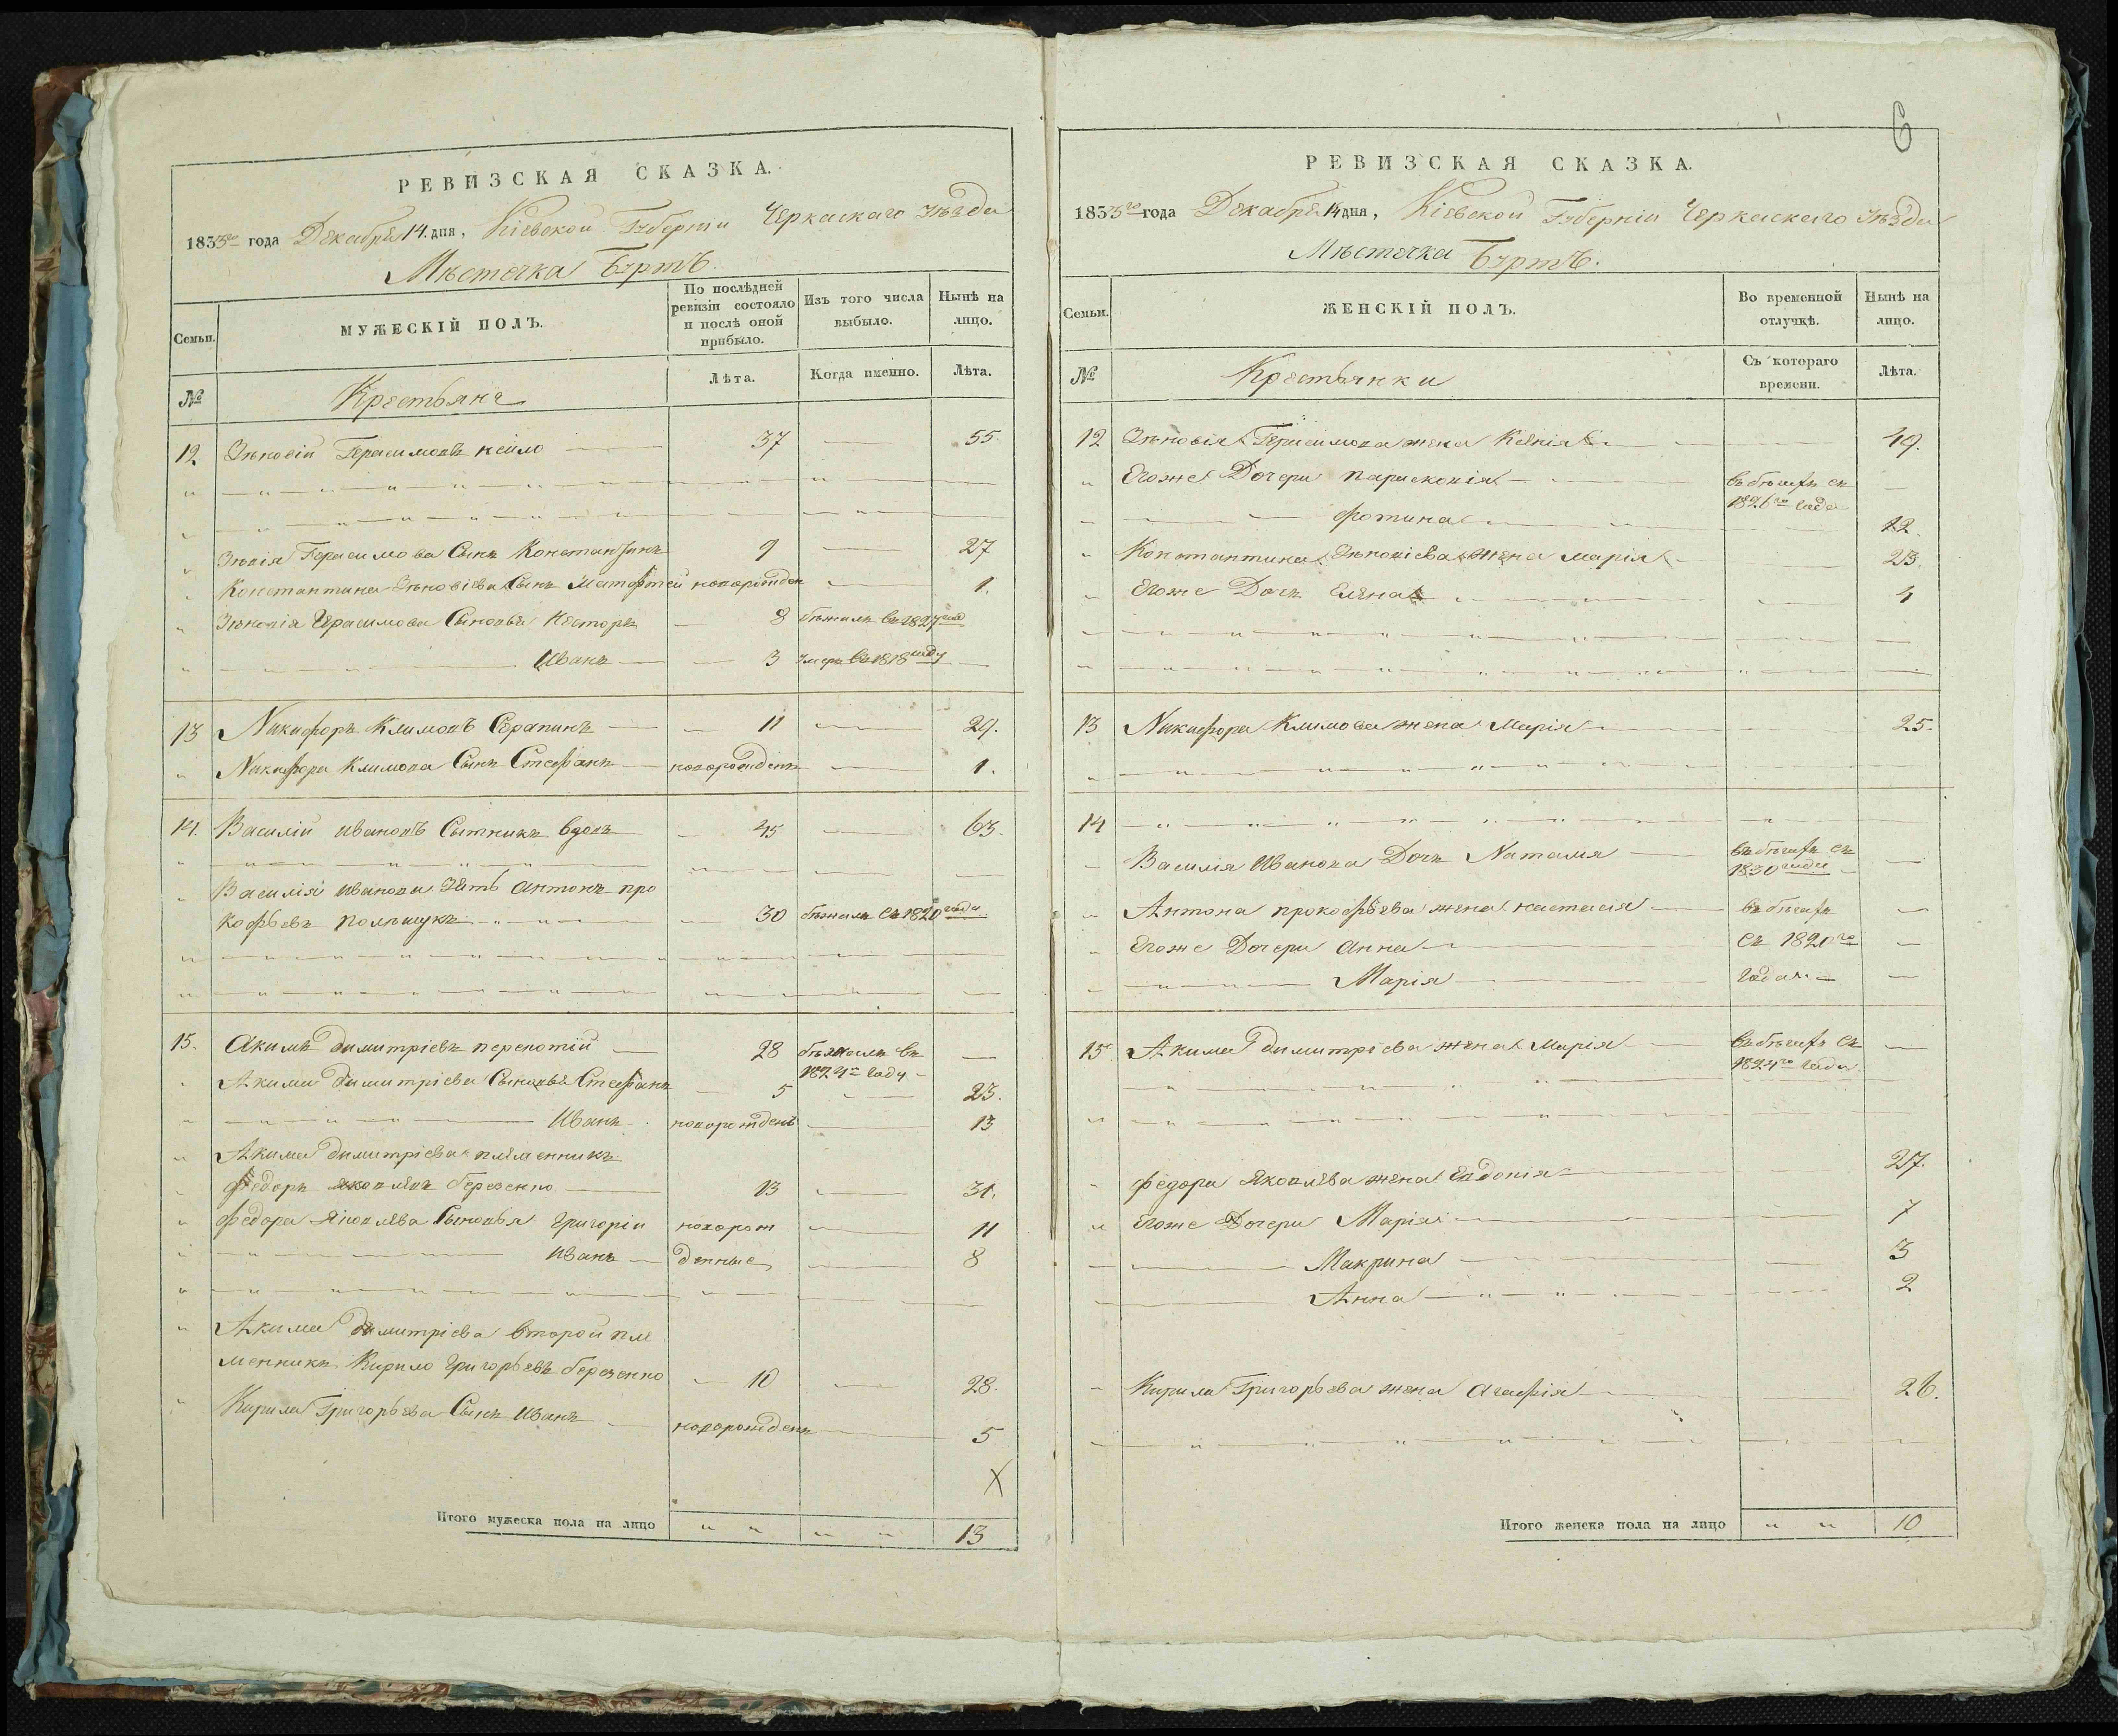 РЕВИЗСКАЯ СКАЗКА.
1833го года Декабря 14. дня, Кіевской Губерніи Черкаскаго Уѣзда
Мѣстечка Буртъ.
Семьи.
МУЖЕСКІЙ ПОЛЪ.
По послѣдней ревизіи состояло и послѣ оной прибыло.
Изъ того числа выбыло.
Нынѣ на лицо.
№
Крестьяне
Лѣта.
Когда именно.
Лѣта.
12 Зѣновій Герасимовъ 37 55.
Зѣновія Герасимова Сынъ Константинъ 9 27
Константина Зѣновіева Сынъ Матофтей новорожден 1.
Зѣновія Герасимова Сыновья Несторъ 8 бѣжалъ въ 1827 год
Иванъ 3 умеръ въ 1818 году
13 Никифоръ Климовъ 11 29.
Никифора Климова Сынъ Стефанъ новорожденъ 1.
14. Василій Ивановъ Сытникъ вдовъ 45 63.
Василія Иванова Зять Антонъ про
кофьевъ полѣщукъ 30 бѣжалъ съ 1820 года
15. Акимъ димитріевъ 28 бѣжалъ въ
1824м году
Акима димитріева Сыновья Стефанъ 5 23.
Иванъ новорожденъ 13
Акима димитріева племенникъ
федоръ яковлевъ березенко 13 31.
федора Яковлева Сыновья григорій новорож 11
Иванъ денные 8
Акима димитріева второй пле
менникъ Кирило григорьевъ березенко 10 28.
Кирила Григорьева Сынъ Иванъ новорожденъ 5
X
Итого мужеска пола на лицо 13
6
РЕВИЗСКАЯ СКАЗКА.
1833го года Декабря 14 дня, Кіевской Губерніи Черкаскаго Уѣзда
Мѣстечка Буртъ.
Семьи.
ЖЕНСКІЙ ПОЛЪ.
Во временной отлучкѣ.
Нынѣ на лицо.
№
Крестьянки
Съ котораго времени.
Лѣта.
12 Зѣновія Герасимова жена 49.
Егоже Дочери парасковія въ бѣгахъ съ
1826го года
фотина 12.
Константина Зѣновіева жена марія 23.
Егоже Дочь Елена 4
13 Никифора Климова жена Марія 25.
14
Василія Иванова Дочь Наталія въ бѣгахъ съ
1830 года
Антона прокофьева жена настасія въ бѣгахъ
Егоже Дочери Анна съ 1820го
Марія года
15 Акима димитріева жена Марія въ бѣгахъ съ
1824го года.
федора Яковлева жена Евдокія 27.
Егоже Дочери Марія 7
Макрина 3
Анна 2
Кирила Григорьева жена Агафія 26.
Итого женска пола на лицо 10